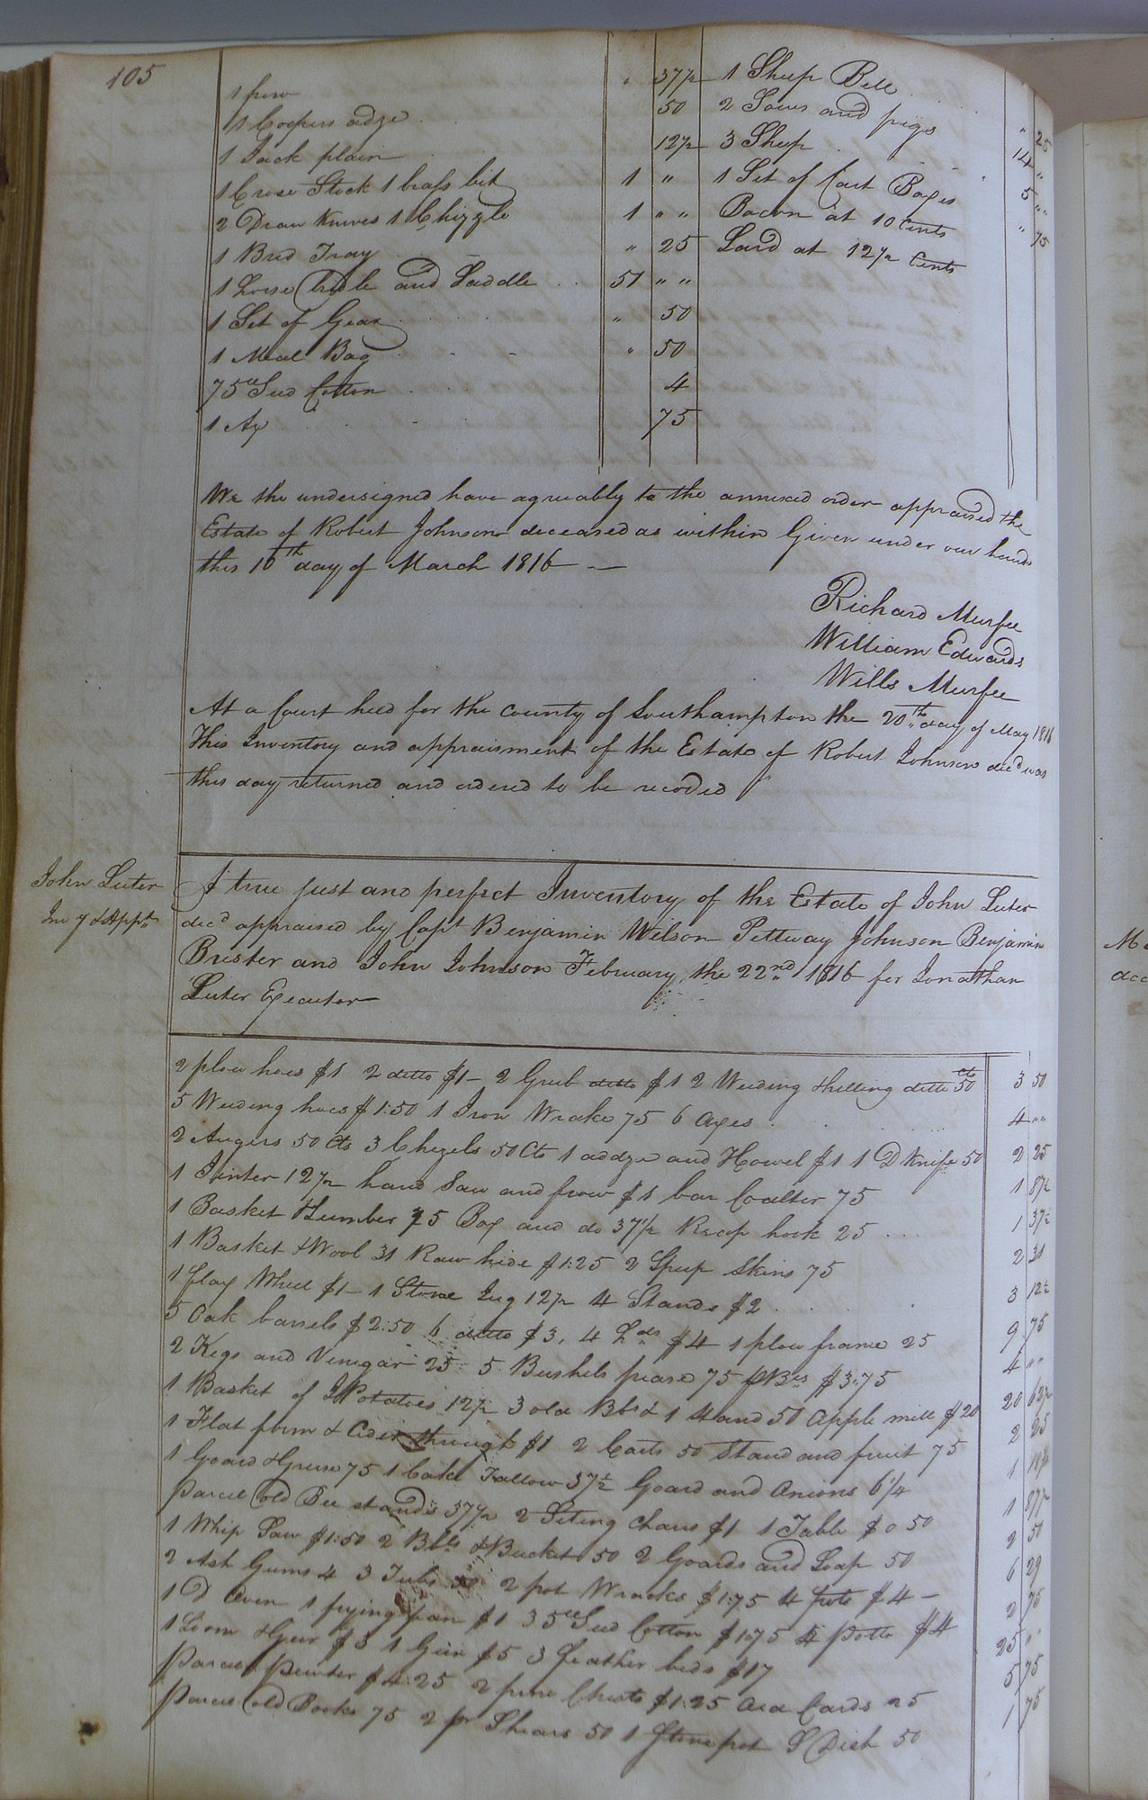 105
1 frow " 37½
1 Coopers adze 50
1 Jack plain 12½
1 Croze Stock 1 brass bit 1 "
2 Draw Knives 1 Chizzle 1 " "
1 Bred Tray " 25
1 Horse Bridle and Saddle 51 " "
1 Set of Gear " 50
1 Meal Bag " 50
75 Seed Cotton 4
1 Ax 75
1 Sheep Bell " 25
2 Sows and pigs 14 "
3 Sheep 5 " "
1 Set of Cart Boxes " 75
Bacon at 10 Cents
Lard at 12½ Cents
We the undersigned have agreeably to the annexed order appraised the
Estate of Robert Johnson deceased as within Given under our hands
this 16th day of March 1816 —
Richard Murfee
William Edwards
Wills Murfee
At a Court held for the County of Southampton the 20th day of May 1816
This Inventory and appraisment of the Estate of Robert Johnson decd was
this day returned and ordered to be recorded
John Luter
Inv y & Appt
A true just and perfect Inventory of the Estate of John Luter
decd appraised by Capt Benjamin Wilson Pettway Johnson Benjamin
Brister and John Johnson February the 22nd 1816 for Jonathan
Luter Executor
2 plow hoes $1 2 ditto $1– 2 Grub ditto $1 2 Weeding & hilling ditto 50 cts 3 50
5 Weeding hoes $1.50 1 Iron Wrake 75 6 Axes 4 " "
2 Augers 50 Cts 3 Chezels 50 Cts 1 addze and Howel $1 1 D Knife 50 2 25
1 Jointer 12½ hand Saw and frow $1 bar Coalter 75 1 87½
1 Basket & Lumber 75 Box and do 37½ Reap hook 25 1 37½
1 Basket & Wool 31 Raw hide $1.25 2 Sheep Skins 75 2 31
1 flax Wheel $1– 1 Stone Jug 12½ 4 Stands $2 3 12½
5 Oak barrels $2.50 6 ditto $3. 4 Hds $4 1 plow frame 25 9 75
2 Kegs and Vinegar 25 5 Bushels pease 75 Bls $3.75 4 " "
1 Basket of Potatoes 12½ 3 old Bbs & 1 Stand 50 Apple mill $20 20 62½
1 Flat form & Cider through $1 2 Casts 50 Stand and fruit 75 2 25
1 Goard & Grese 75 1 Cake Tallow 37½ Goard and Onions 6¼ 1
parcel old Bee stands 37½ 2 Siting Chairs $1 1 Table $0 50 1 87½
1 Whip Saw $1.50 2 Bbls & Bucket 50 2 Goards and Soap 50 2 50
2 Ash Gums 4 3 Tubs 2 pot Wracks $1.75 4 pots $4 – 6 29
1 D Oven 1 frying pan $1 35 Seed Cotton $1.75 4 potts $4 2 75
1 Loom & Gear $3 1 Gun $5 3 feather beds $17 25 " "
parcel pewter $4.25 2 pine Chests $1.25 old Cards 25 5 75
parcel old Books 75 2 pr Shears 50 1 Stone pot & Dish 50 1 75